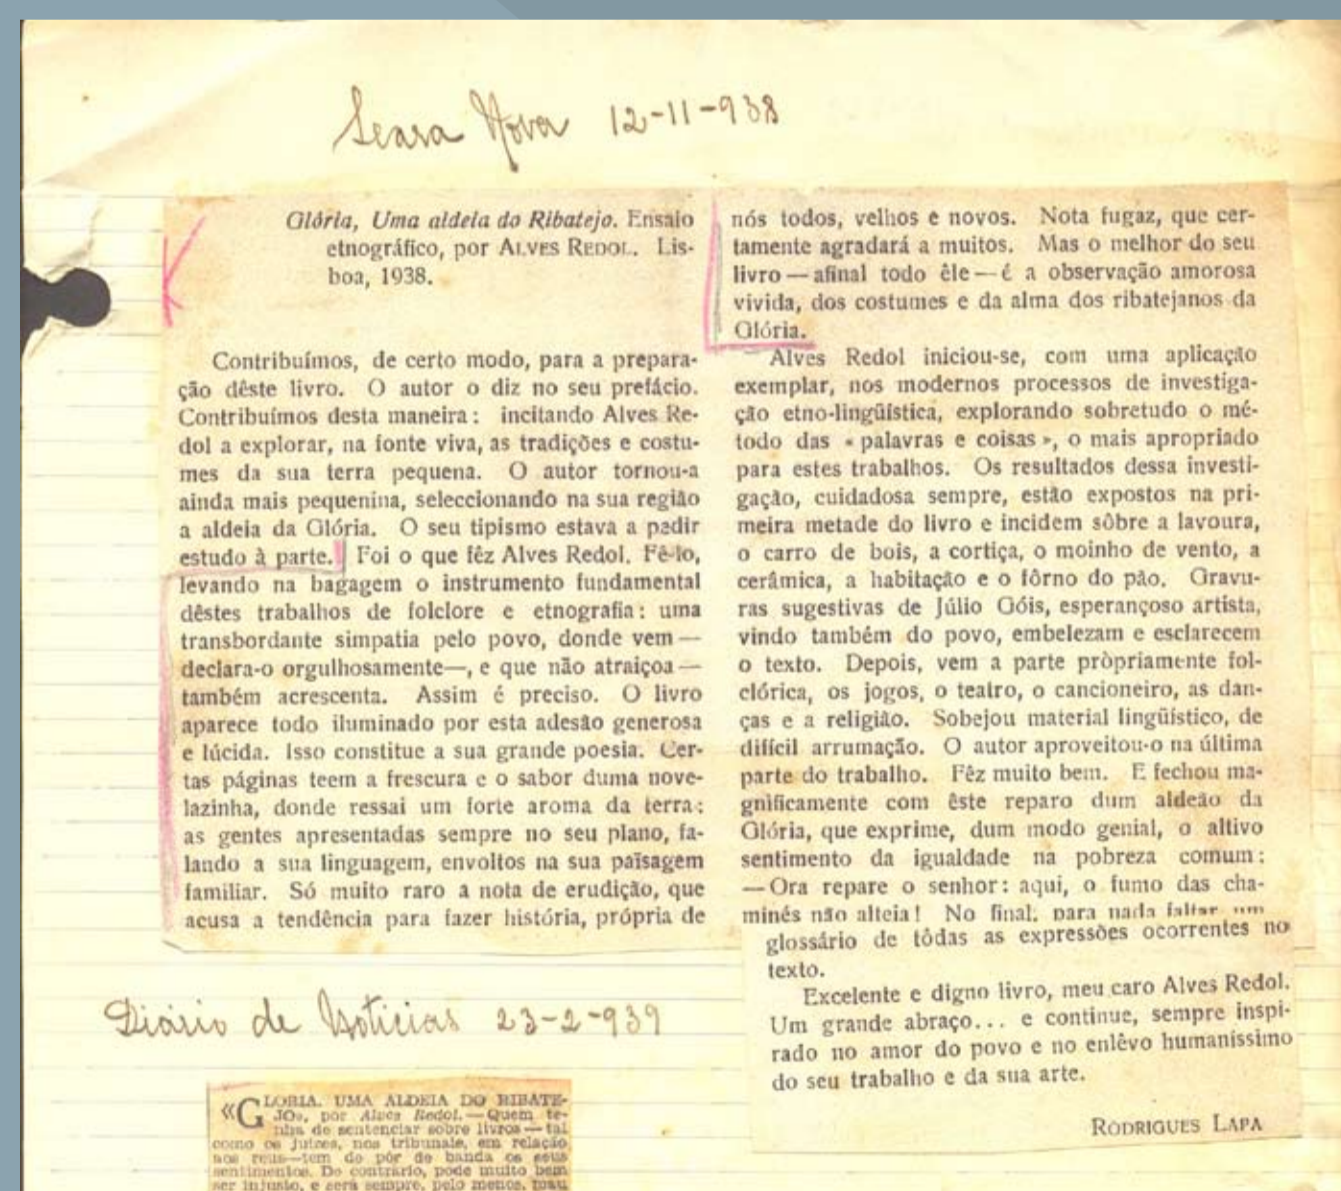 Seara Nova 12-11-938
Glória, Uma aldeia do Ribatejo. Ensaio
etnográfico, por ALVES REDOL. Lis-
boa, 1938.
Contribuímos, de certo modo, para a prepara-
ção dêste livro. O autor o diz no seu prefácio.
Contribuímos desta maneira: incitando Alves Re-
dol a explorar, na fonte viva, as tradições e costu-
mes da sua terra pequena. O autor tornou-a
ainda mais pequenina, seleccionando na sua região
a aldeia da Glória. O seu tipismo estava a padir
estudo à parte. Foi o que fêz Alves Redol. Fê-lo,
levando na bagagem o instrumento fundamental
dêstes trabalhos de folclore e etnografia: uma
transbordante simpatia pelo povo, donde vem —
declara-o orgulhosamente—, e que não atraiçoa —
também acrescenta. Assim é preciso. O livro
aparece todo iluminado por esta adesão generosa
e lúcida. Isso constitue a sua grande poesia. Cer-
tas páginas teem a frescura e o sabor duma nove-
lazinha, donde ressai um forte aroma da terra:
as gentes apresentadas sempre no seu plano, fa-
lando a sua linguagem, envoltos na sua païsagem
familiar. Só muito raro a nota de erudição, que
acusa a tendência para fazer história, própria de
nós todos, velhos e novos. Nota fugaz, que cer-
tamente agradará a muitos. Mas o melhor do seu
livro — afinal todo êle — é a observação amorosa
vivida, dos costumes e da alma dos ribatejanos da
Glória.
Alves Redol iniciou-se, com uma aplicação
exemplar, nos modernos processos de investiga-
ção etno-lingüística, explorando sobretudo o mé-
todo das « palavras e coisas », o mais apropriado
para estes trabalhos. Os resultados dessa investi-
gação, cuidadosa sempre, estão expostos na pri-
meira metade do livro e incidem sôbre a lavoura,
o carro de bois, a cortiça, o moinho de vento, a
cerâmica, a habitação e o fôrno do pão. Gravu-
ras sugestivas de Júlio Góis, esperançoso artista,
vindo também do povo, embelezam e esclarecem
o texto. Depois, vem a parte pròpriamente fol-
clórica, os jogos, o teatro, o cancioneiro, as dan-
ças e a religião. Sobejou material lingüístico, de
difícil arrumação. O autor aproveitou-o na última
parte do trabalho. Fêz muito bem. E fechou ma-
gnificamente com êste reparo dum aldeão da
Glória, que exprime, dum modo genial, o altivo
sentimento da igualdade na pobreza comum:
— Ora repare o senhor: aqui, o fumo das cha-
minés não alteia! No final, para nada faltar um
glossário de tôdas as expressões ocorrentes no
texto.
Excelente e digno livro, meu caro Alves Redol.
Um grande abraço... e continue, sempre inspi-
rado no amor do povo e no enlêvo humaníssimo
do seu trabalho e da sua arte.
RODRIGUES LAPA
Diário de Noticias 23-2-939
«GLORIA. UMA ALDEIA DO RIBATE-
JO», por Alves Redol. — Quem te-
nha de sentenciar sobre livros — tal
como os juizes, nos tribunais, em relação
aos reus—tem de pôr de banda os seus
sentimentos. De contrário, pode muito bem
ser injusto, e será sempre, pelo menos, mau